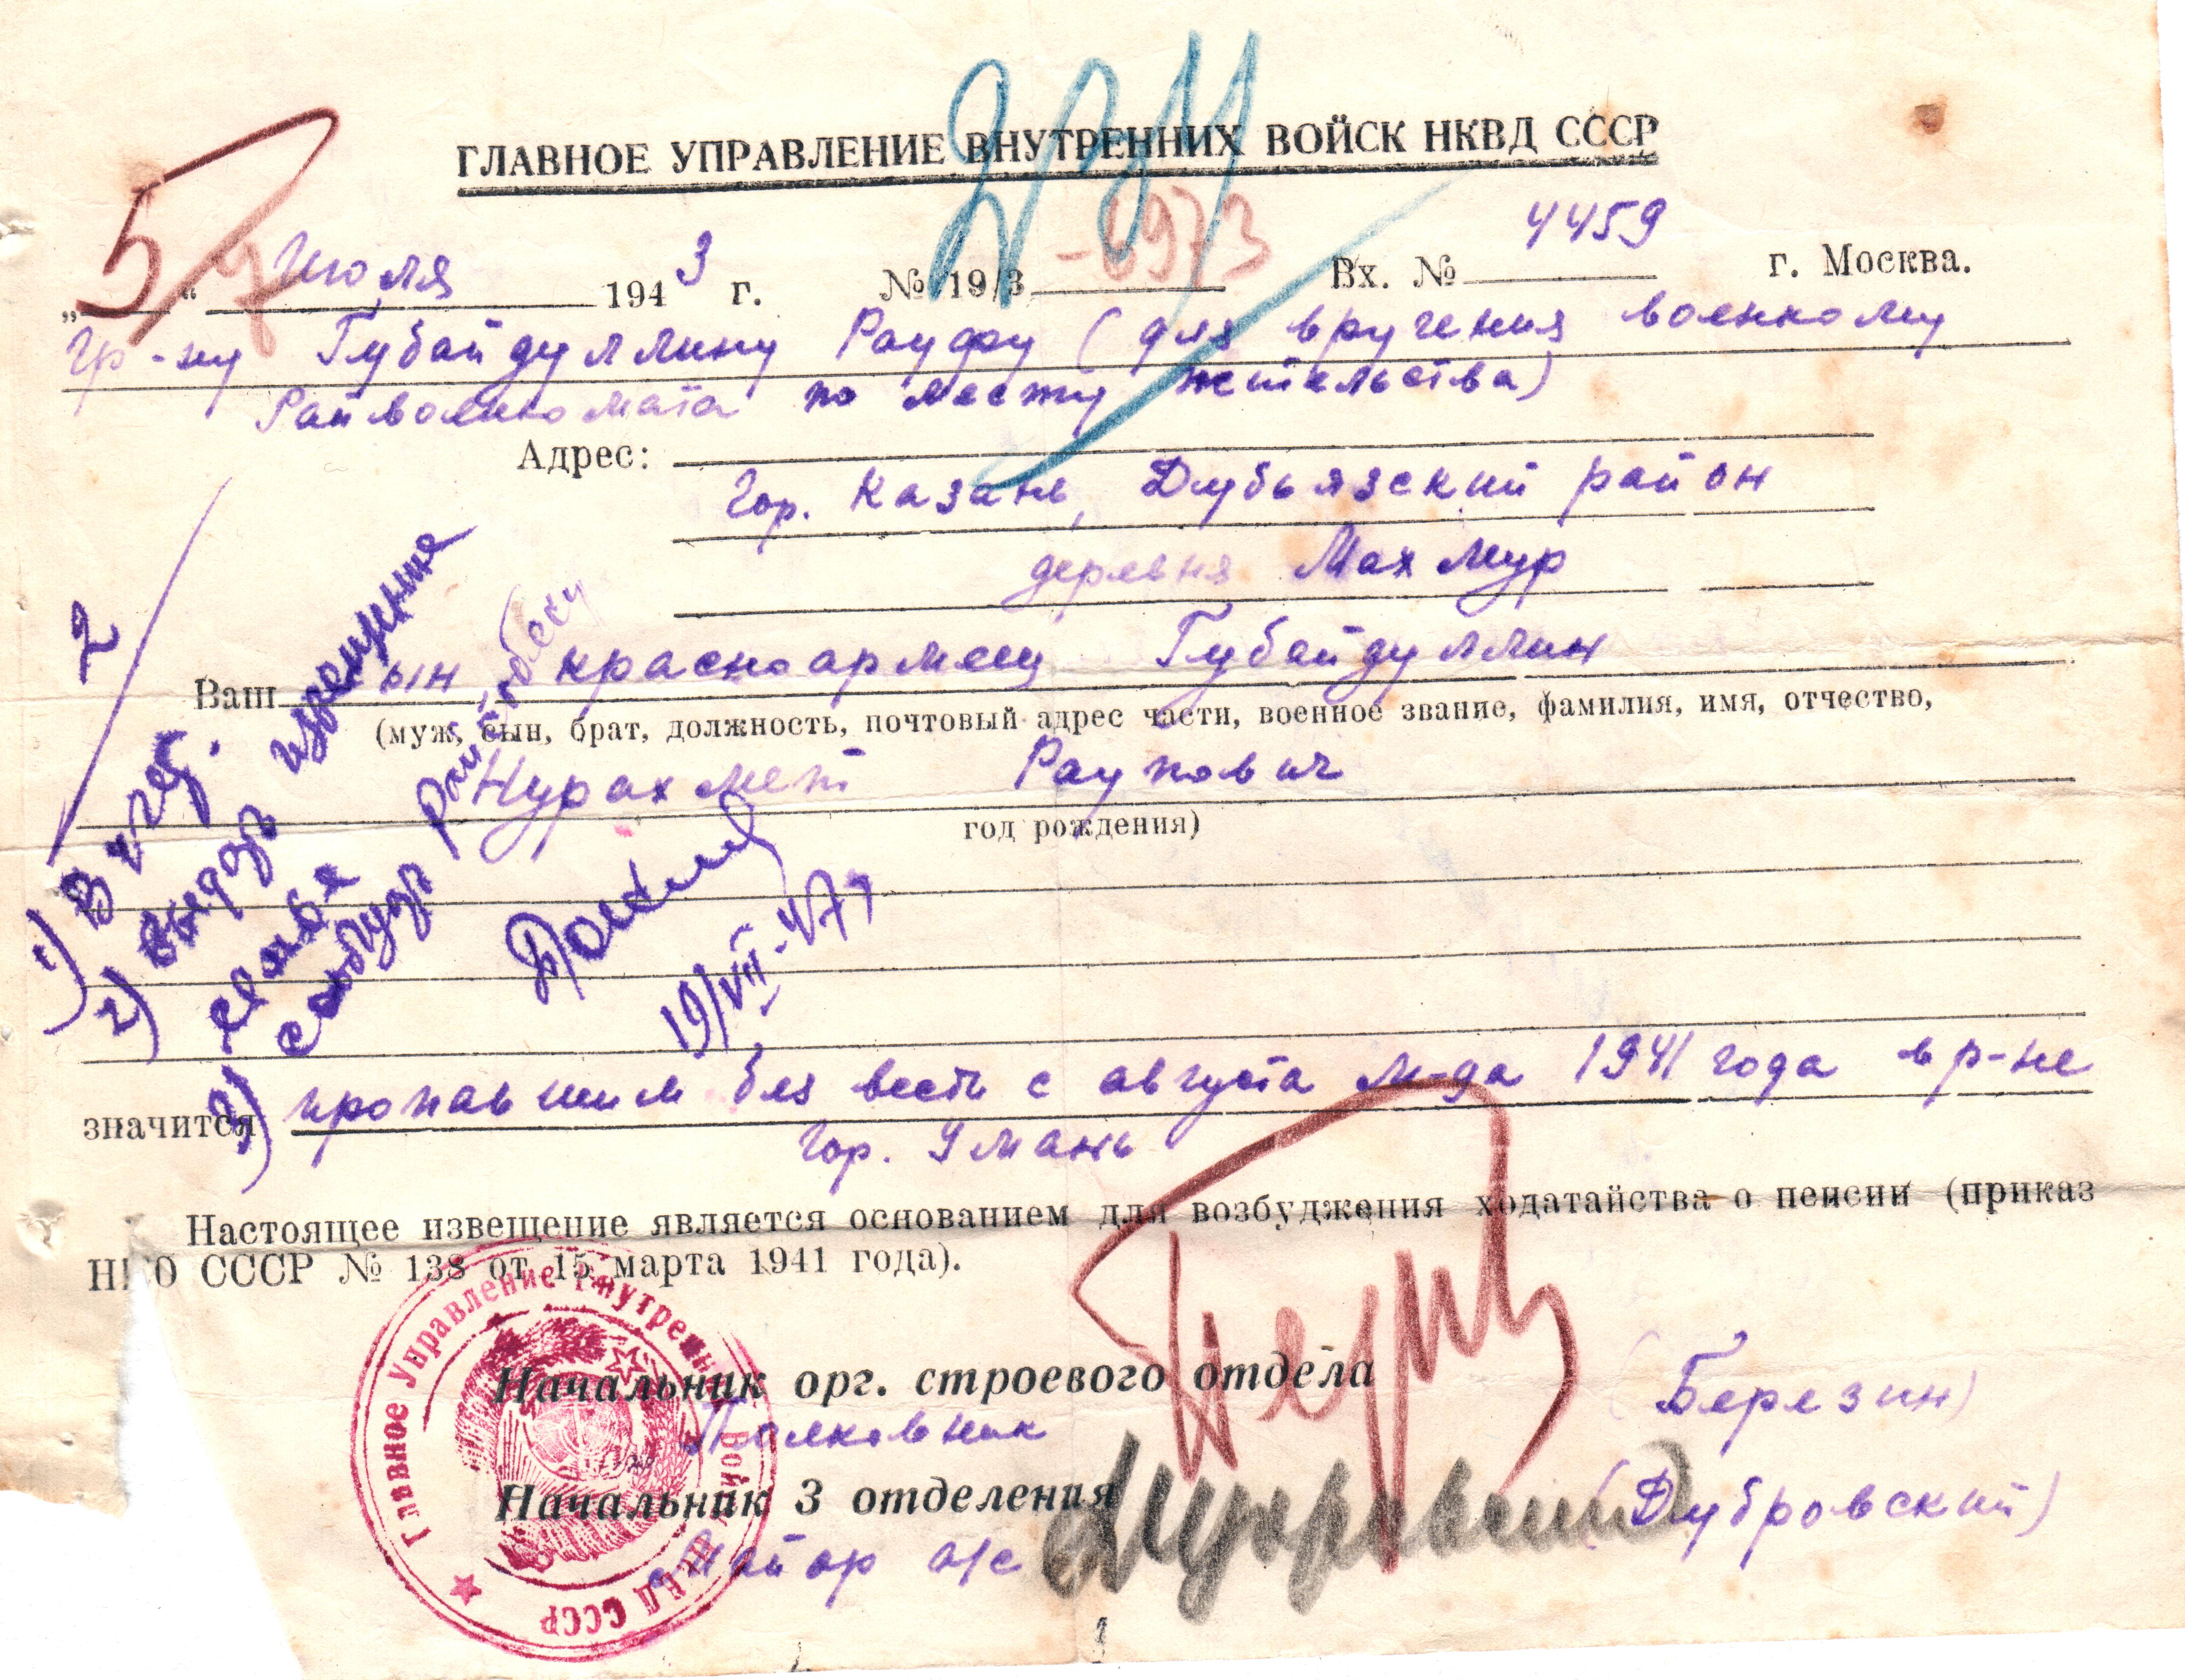 ГЛАВНОЕ УПРАВЛЕНИЕ ВНУТРЕННИХ ВОЙСК НКВД СССР
„5“ Июля 1943 г. № 19/3 -6973 Вх. № 4459 г. Москва.
Гр-ну Губайдуллину Рауфу (для вручения военкому
Райвоенкомата по месту жительства)
Адрес:
Гор. Казань, Дубьязский район
деревня Махмур
Ваш сын красноармеец Губайдуллин
(муж, сын, брат, должность, почтовый адрес части, военное звание, фамилия, имя, отчество,
Нурахмет Раупович
год рождения)
2
1) В учет.
2) выдать извещение
семье
3) райсобесу
19/VII-47
значится пропавшим без вести с августа м-ца 1941 года в р-не
гор. Умань
Настоящее извещение является основанием для возбуждения ходатайства о пенсии (приказ
Н О СССР № 138 от 15 марта 1941 года).
Главное Управление Внутренних Войск НКВД СССР
Начальник орг. строевого отдела
Полковник (Березин)
Начальник 3 отделения
Майор а/с (Дубровский)